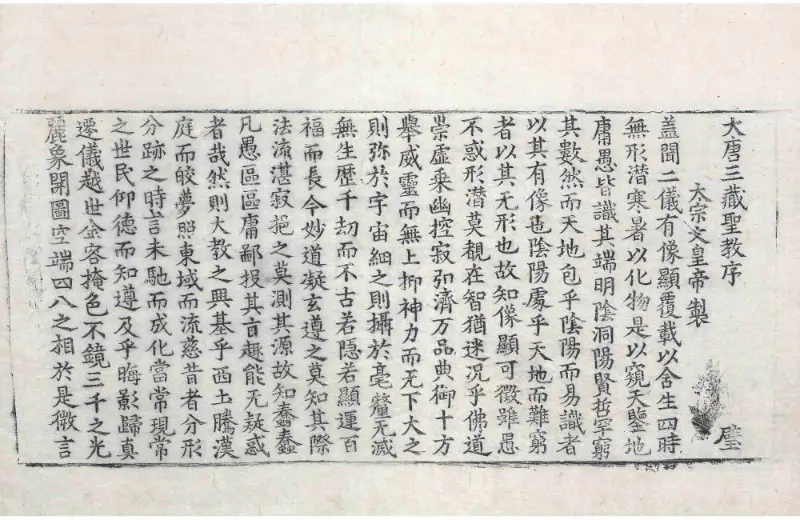 大唐三藏聖教序 璧
太宗文皇帝製
蓋聞二儀有像顯覆載以含生四時
無形潜寒暑以化物是以窺天鑒地
庸愚皆識其端明陰洞陽賢哲罕窮
其數然而天地包乎陰陽而易識者
以其有像也陰陽處乎天地而難窮
者以其无形也故知像顯可徵雖愚
不惑形潜莫覩在智猶迷况乎佛道
崇虛乘幽控寂弘濟万品典御十方
舉威靈而無上抑神力而无下大之
則弥於宇宙細之則攝於毫釐无滅
無生歷千劫而不古若隱若顯運百
福而長今妙道凝玄遵之莫知其際
法流湛寂挹之莫測其源故知蠢蠢
凡愚區區庸鄙投其旨趣能无疑惑
者哉然則大教之興基乎西土騰漢
庭而皎夢照東域而流慈昔者分形
分跡之時言未馳而成化當常現常
之世民仰德而知遵及乎晦影歸真
遷儀越世金容掩色不鏡三千之光
麗象開圖空端四八之相於是微言